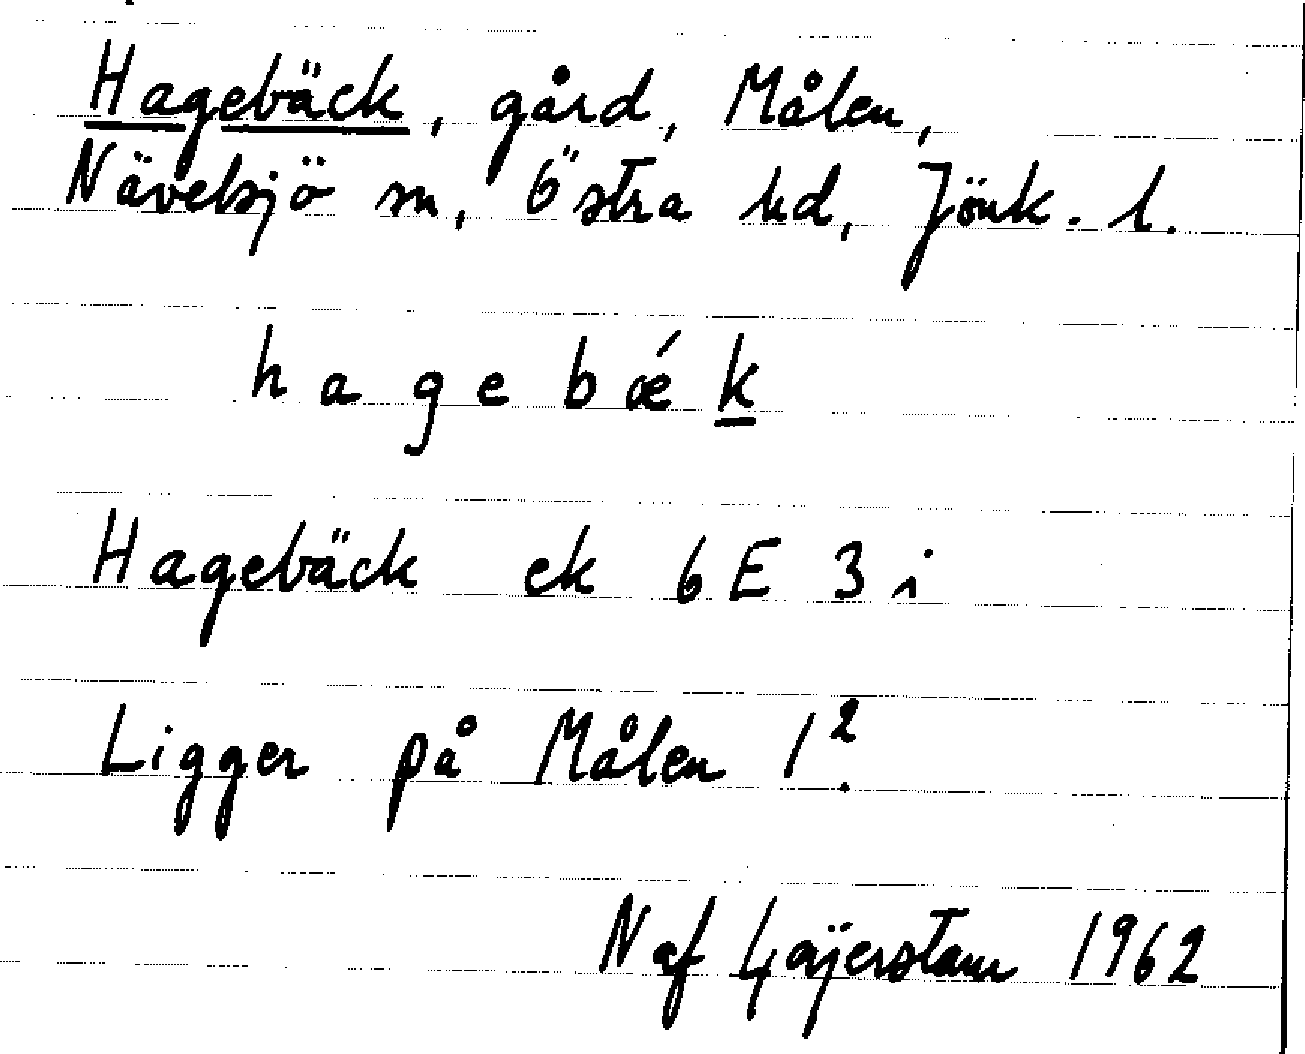 Hagebäck, gård, Målen,
Nävelsjö sn, Östra hd, Jönk. l.
h a g e b ǽ k
Hagebäck ek 6E 3 i
Ligger på Målen 1².
N af Gäijerstam 1962